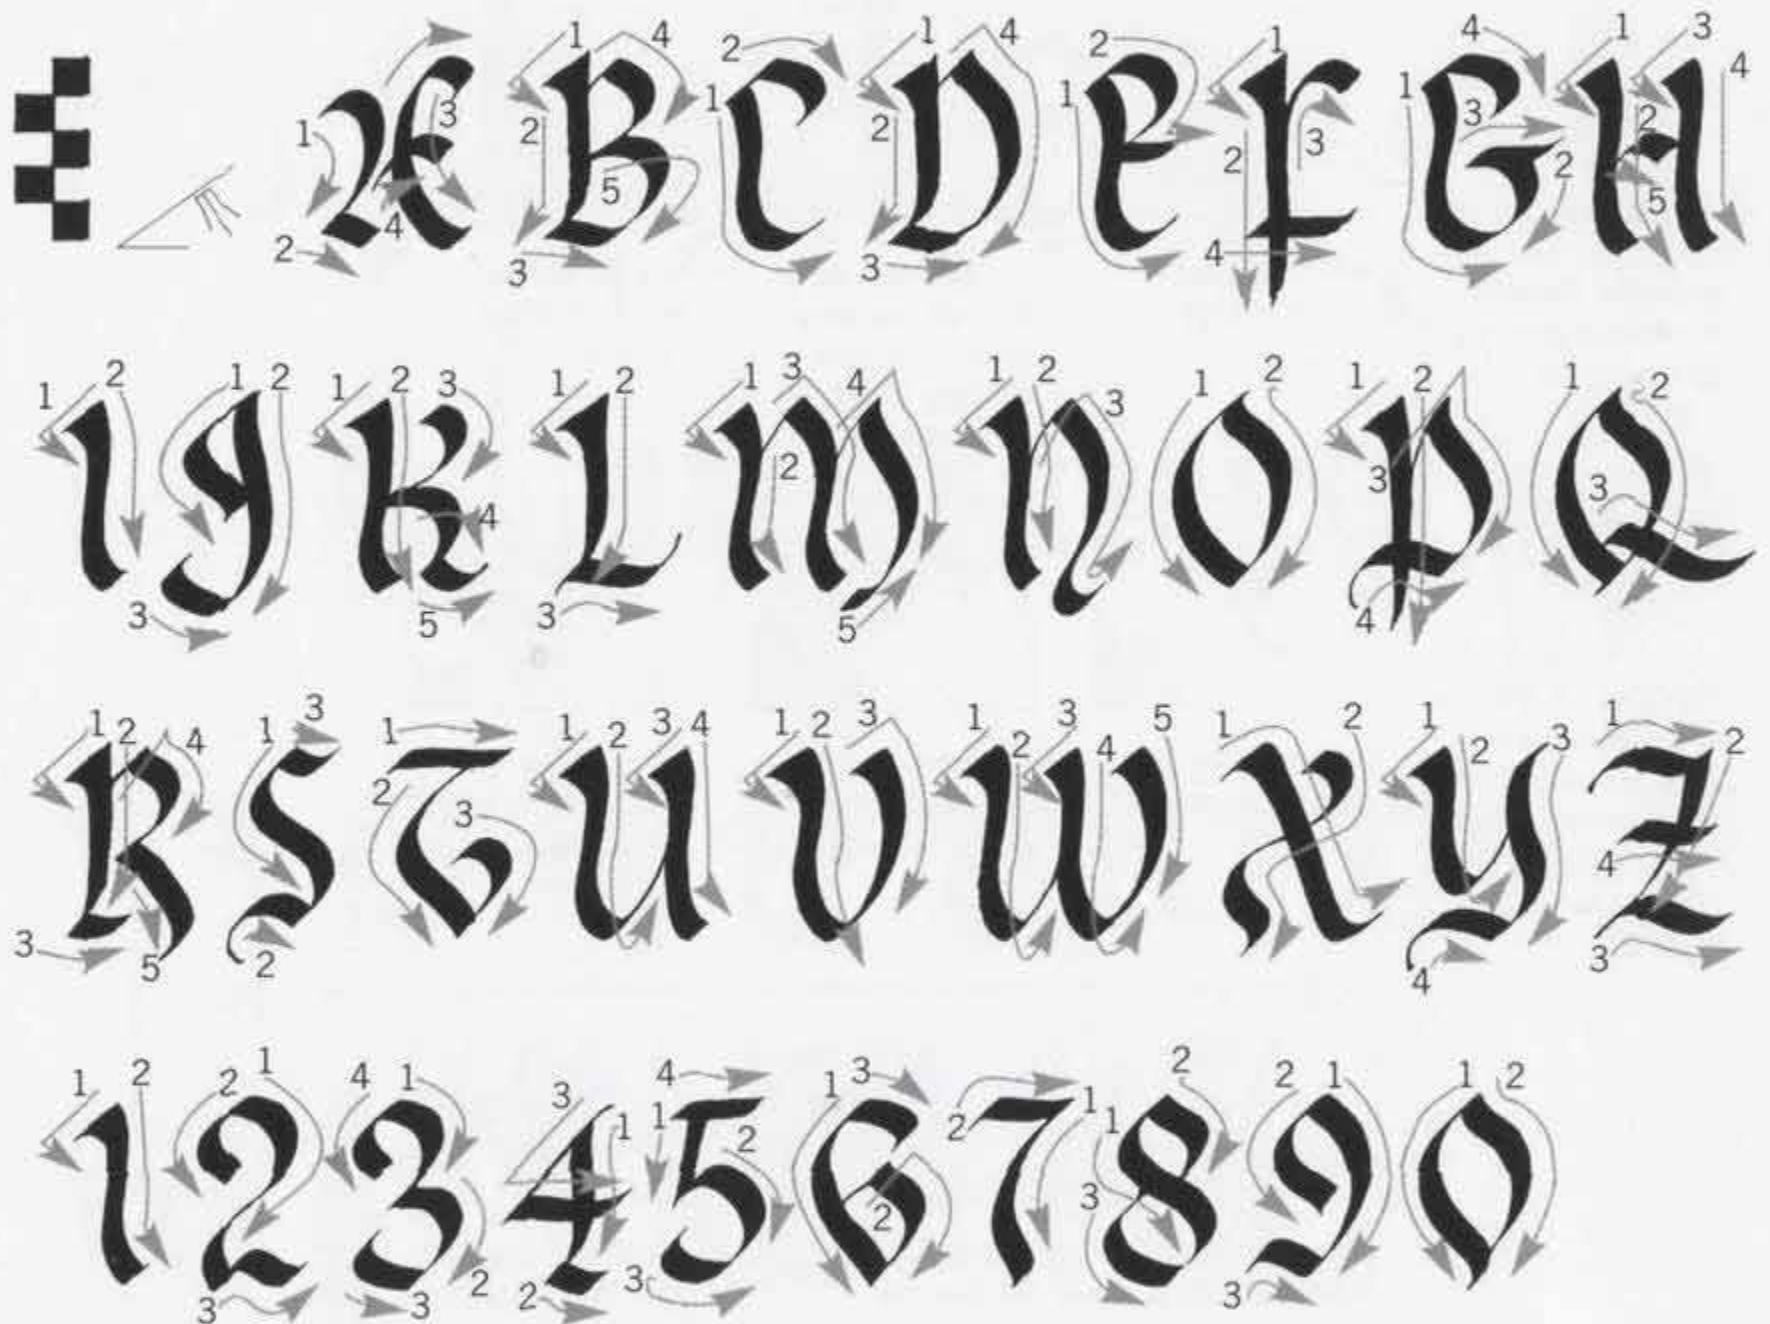 A B C D E F G H
I J K L M N O P Q
R S T U V W X Y Z
1 2 3 4 5 6 7 8 9 0